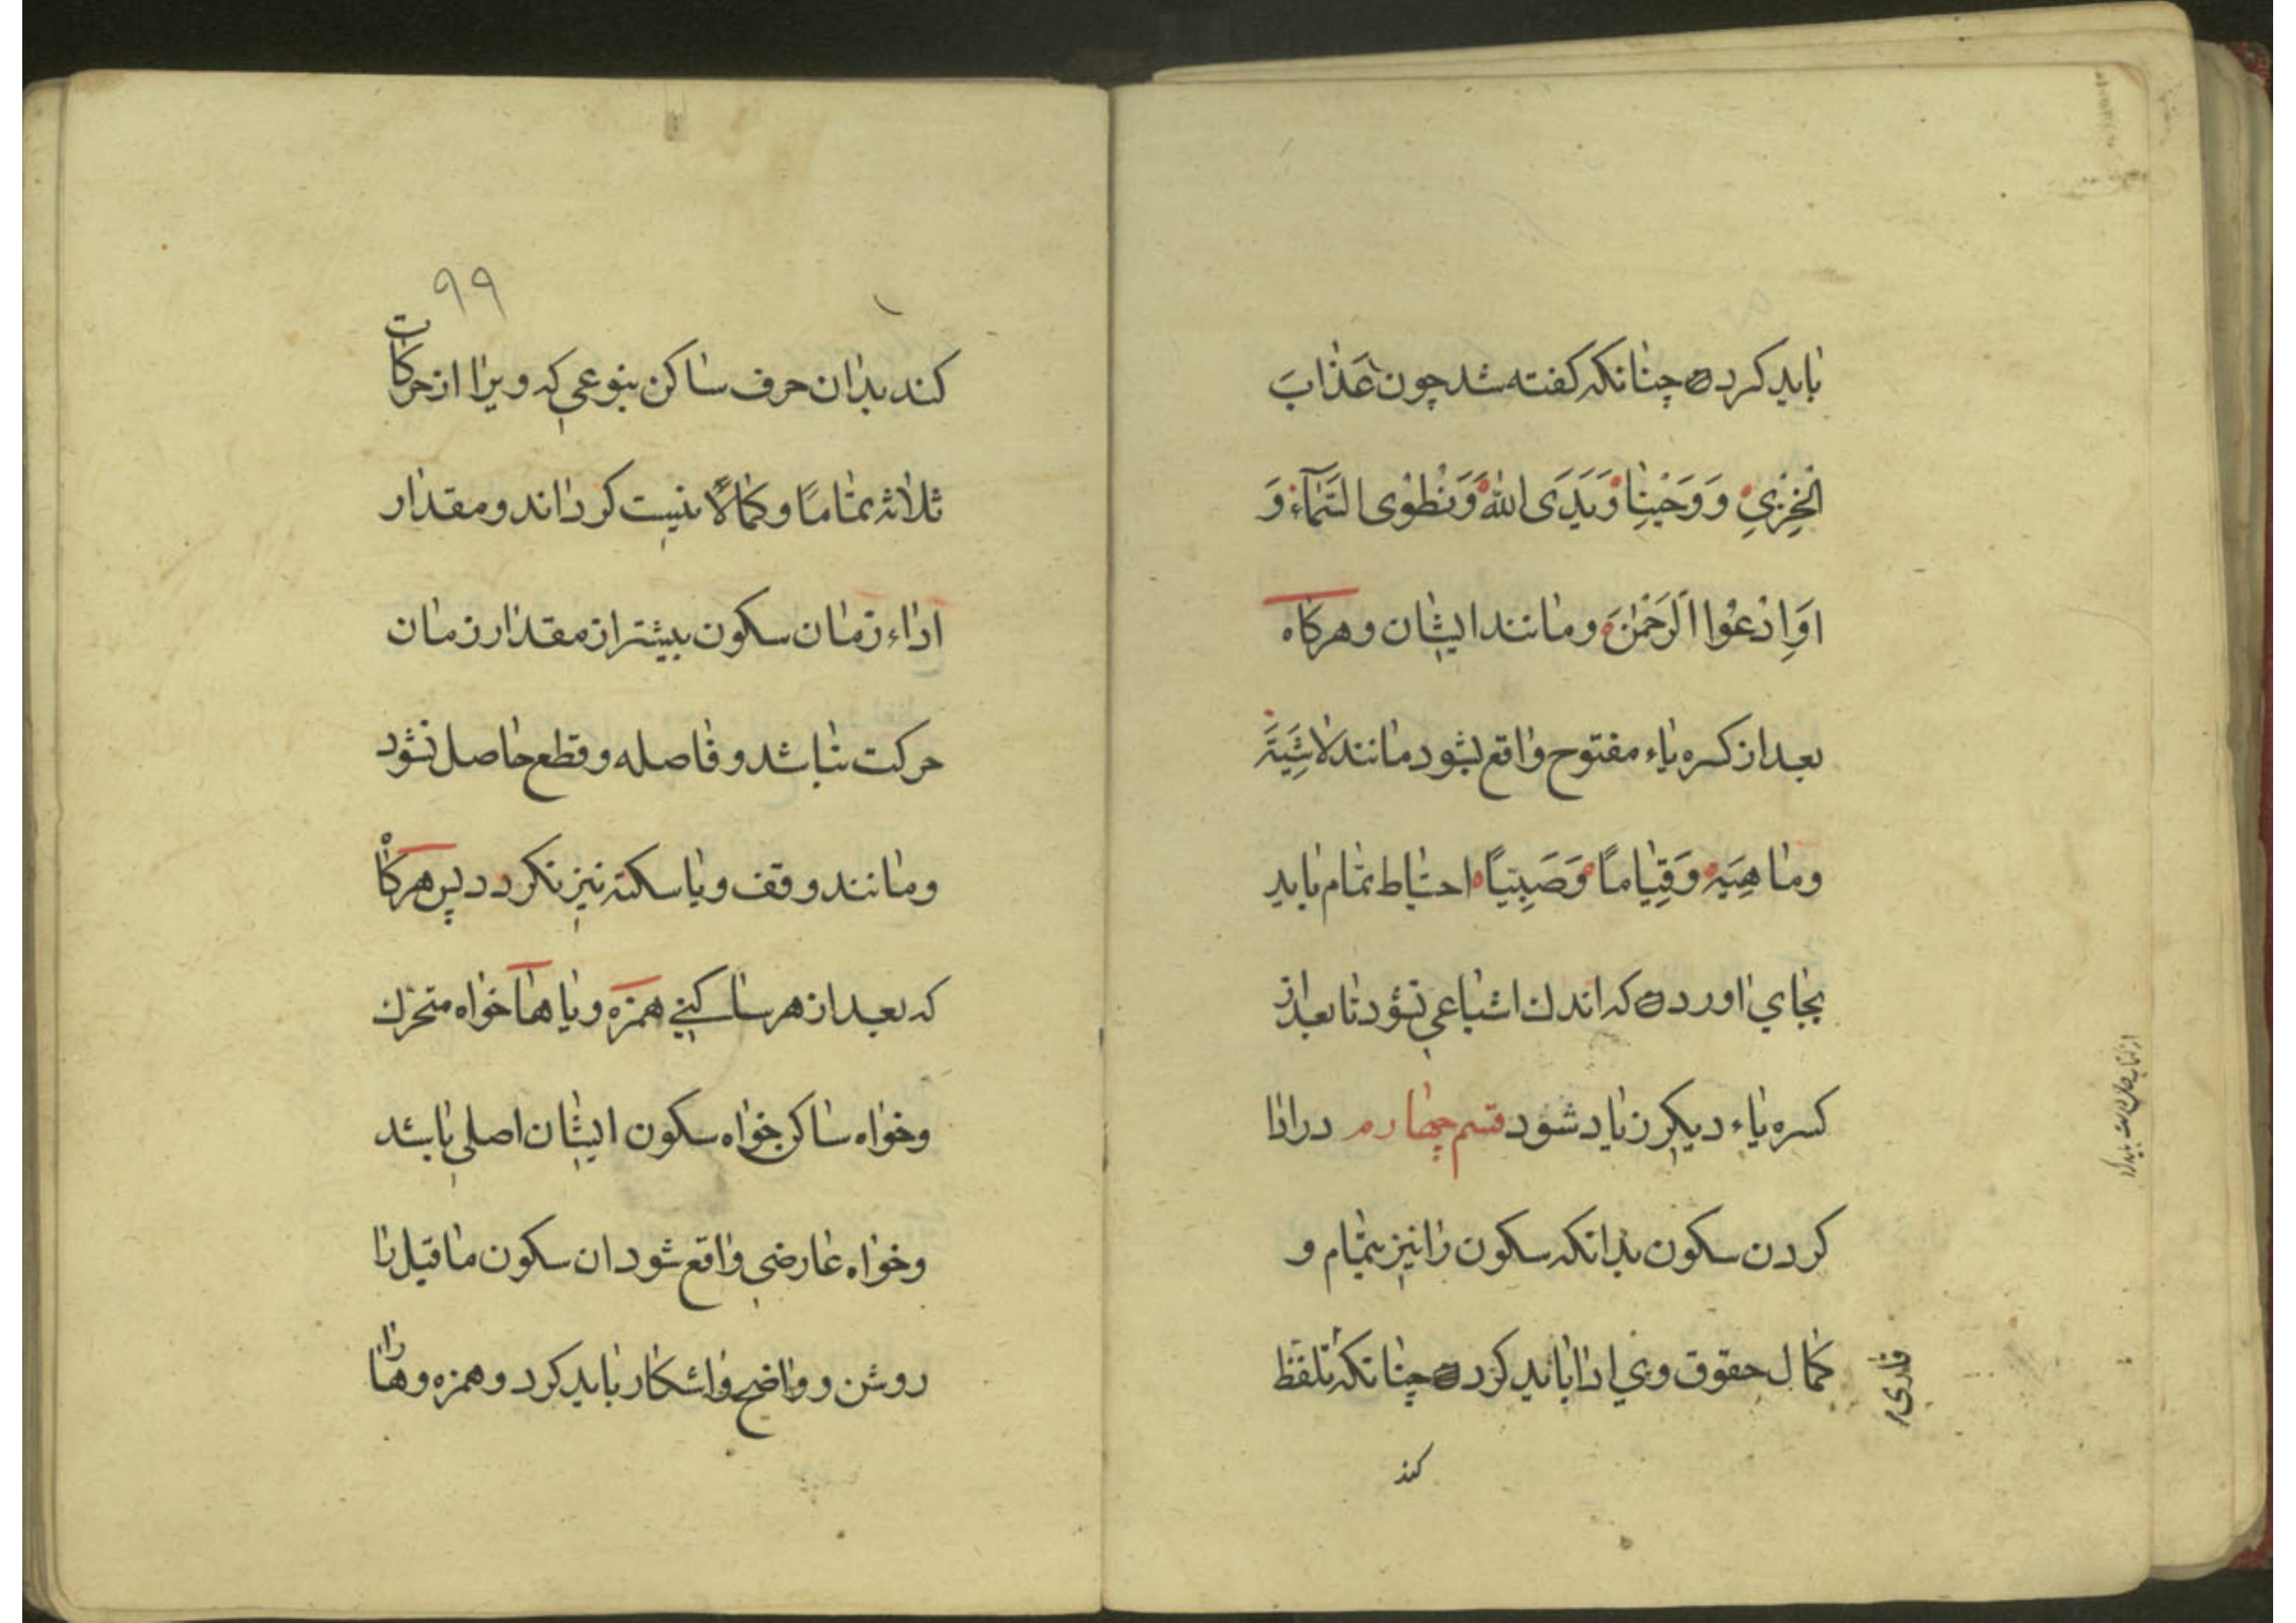 باید کرد چنانکه کفته شد چون عَذَابَ
الْخِزْيِ وَوَحْيِنَا وَيَدَىِ اللّٰهِ وَنَطْوِى السَّمَآءَ وَ
اَوِادْعُوا الرَّحْمٰنَ و مانند ایشان و هرکاه
بعد از کسره یاء مفتوح واقع بشود مانند لاشِيَةَ
وما هِيَه وَقِيَامًا وَصَبِيًّا احتیاط تمام باید
بجای اورد که اندك اشباعی نشود تا بعد از
کسره یاء دیکر زیاد شود قسم چهارم در ادا
کردن سکون بدانکه سکون را نیز بتمام و
کمال حقوق وی ادا باید کرد چنانکه تلفظ
قاری
کند
۹۹
کند بدان حرف ساکن بنوعی که ویرا از حرکات
ثلاثه تماما و کمالا نیست کرداند و مقدار
اداء زمان سکون بیشتر از مقدار زمان
حرکت نباشد و فاصله و قطع حاصل نشود
و مانند وقف و یا سکته نیز نکردد پس هرکاه
که بعد از هر ساکنی همزه و یا ها خواه متحرك
و خواه ساکن خواه سکون ایشان اصلی باشد
و خواه عارضی واقع شود ان سکون ماقبل را
روشن و واضح و اشکار باید کرد و همزه و ها را